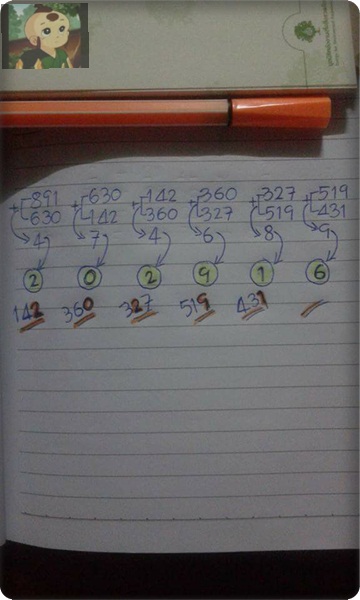 +891 +630 +142 +360 +327 +519
630 142 360 327 519 431
4 7 4 6 8 9
2 0 2 9 1 6
142 360 327 519 431